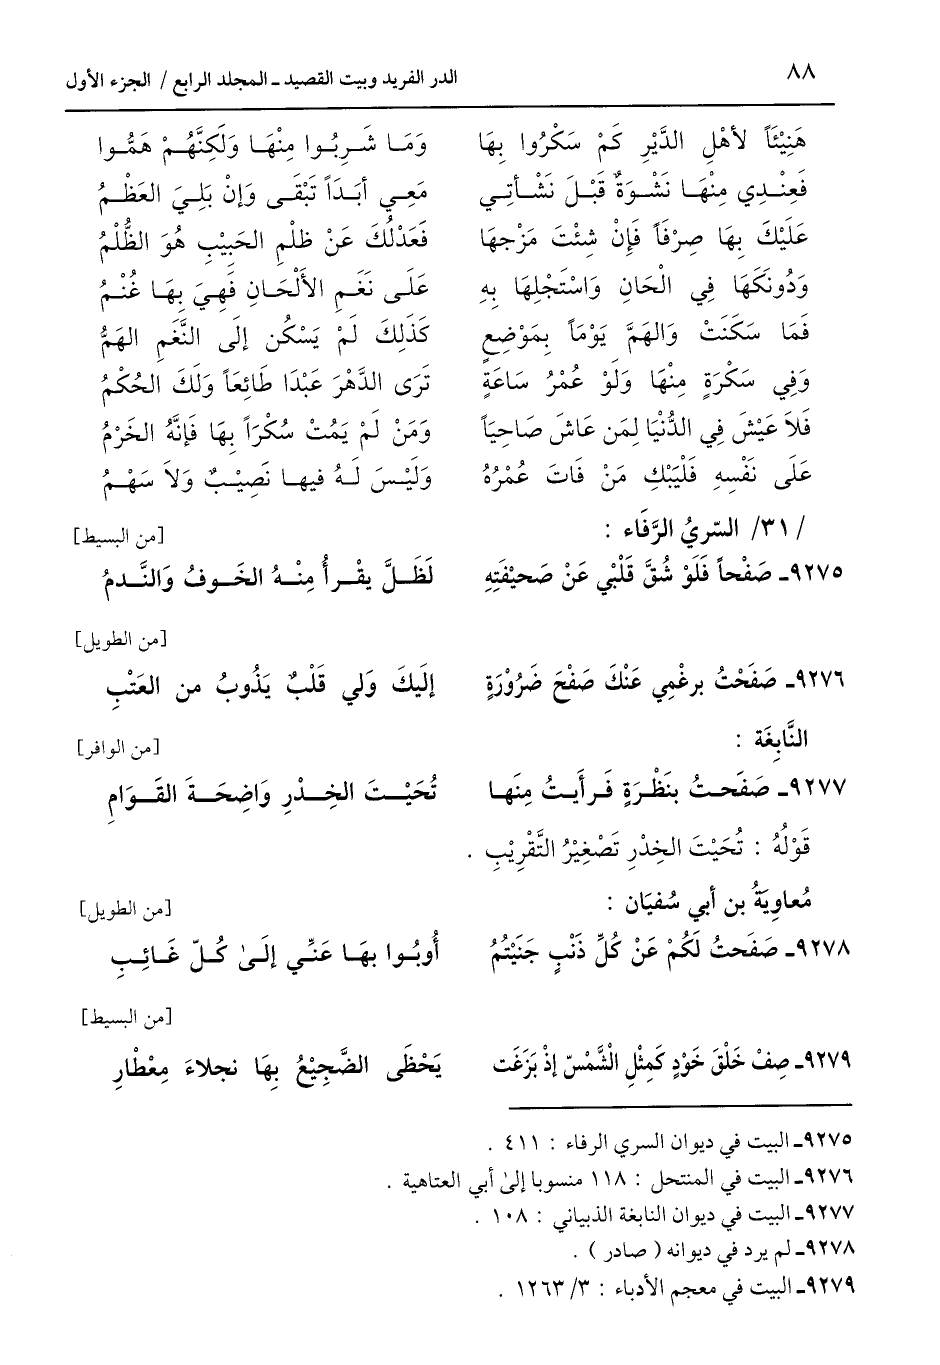 ٨٨ الدر الفريد وبيت القصيد ـ المجلد الرابع / الجزء الأول
هَنِيْئَاً لأهْلِ الدَّيْرِ كَمْ سَكْرُوا بِهَا وَمَا شَرِبُوا مِنْهَا وَلَكِنَّهُمْ هَمُّوا
فَعِنْدِي مِنْهَا نَشْوَةٌ قَبْلَ نَشْأتِي مَعِي أبَدَاً تَبْقَى وَإنْ بَلِيَ العَظْمُ
عَلَيْكَ بِهَا صِرْفَاً فَإنْ شِئْتَ مَزْجهَا فَعَدْلُكَ عَنْ ظلْمِ الحَبِيْبِ هُوَ الظُّلْمُ
وَدُونكَهَا فِي الْحَانِ وَاسْتَجْلِهَا بِهِ عَلَى نَغَمِ الألْحَانِ فَهِيَ بِهَا غُنْمُ
فَمَا سَكَنَتْ وَالهَمَّ يَوْمَاً بِمَوْضِعٍ كَذَلِكَ لَمْ يَسْكُن إلَى النَّغَمِ الهَمُّ
وَفِي سَكْرَةٍ مِنْهَا وَلَوْ عُمْرُ سَاعَةٍ تَرَى الدَّهْرَ عَبْدَا طَائِعَاً وَلَكَ الحُكْمُ
فَلاَ عَيْشَ فِي الدُّنْيَا لِمَن عَاشَ صَاحِيَاً وَمَنْ لَمْ يَمُتْ سُكْرَاً بِهَا فَإنَّهُ الحَزْمُ
عَلَى نَفْسِهِ فَلْيَبْكِ مَنْ فَاتَ عُمْرُهُ وَلَيْسَ لَهُ فيها نَصِيْبٌ وَلاَ سَهْمُ
/ ٣١/ السّرِيُ الرَّفَاء : [من البسيط]
٩٢٧٥ـ صَفْحاً فَلَوْ شُقَّ قَلْبْي عَنْ صَحيْفَتِهِ لَظَلَّ يقْرأُ مِنْهُ الخَوفُ وَالنَّدمُ
[من الطويل]
٩٢٧٦ـ صَفَحْتُ برغْمِي عَنْكَ صَفْحَ ضَرُوْرَةٍ إلَيكَ وَلي قَلْبٌ يَذُوبُ من العَتْبِ
النَّابِغَة : [من الوافر]
٩٢٧٧ـ صَفَحتُ بنَظْرَةٍ فَرأَيتُ مِنهَا تُحَيْتَ الخِدْرِ وَاضِحَةَ القَوَامِ
قَوْلُهُ : تُحَيْتَ الخِدْرِ تَصْغِيْرُ التَّقْرِيْبِ .
مُعاوِيَةُ بن أبي سُفيَان : [من الطويل]
٩٢٧٨ـ صَفَحتُ لَكُمْ عَنْ كُلِّ ذَنْبٍ جَنَيْتُمُ أُوبُوا بِهَا عَنِّي إلَىٰ كُلّ غَائِبِ
[من البسيط]
٩٢٧٩ـ صِفْ خَلْقَ خَوْدٍ كَمِثْلِ الْشَّمْسّ إذْ بَزَغَت يَحْظَى الضَّجيْعُ بِهَا نجلاءَ مِعْطارِ
٩٢٧٥ـ البيت في ديوان السري الرفاء : ٤١١ .
٩٢٧٦ـ البيت في المنتحل : ١١٨ منسوبا إلىٰ أبي العتاهية .
٩٢٧٧ـ البيت في ديوان النابغة الذبياني : ١٠٨ .
٩٢٧٨ـ لم يرد في ديوانه ( صادر ) .
٩٢٧٩ـ البيت في معجم الأدباء : ٣/ ١٢٦٣ .